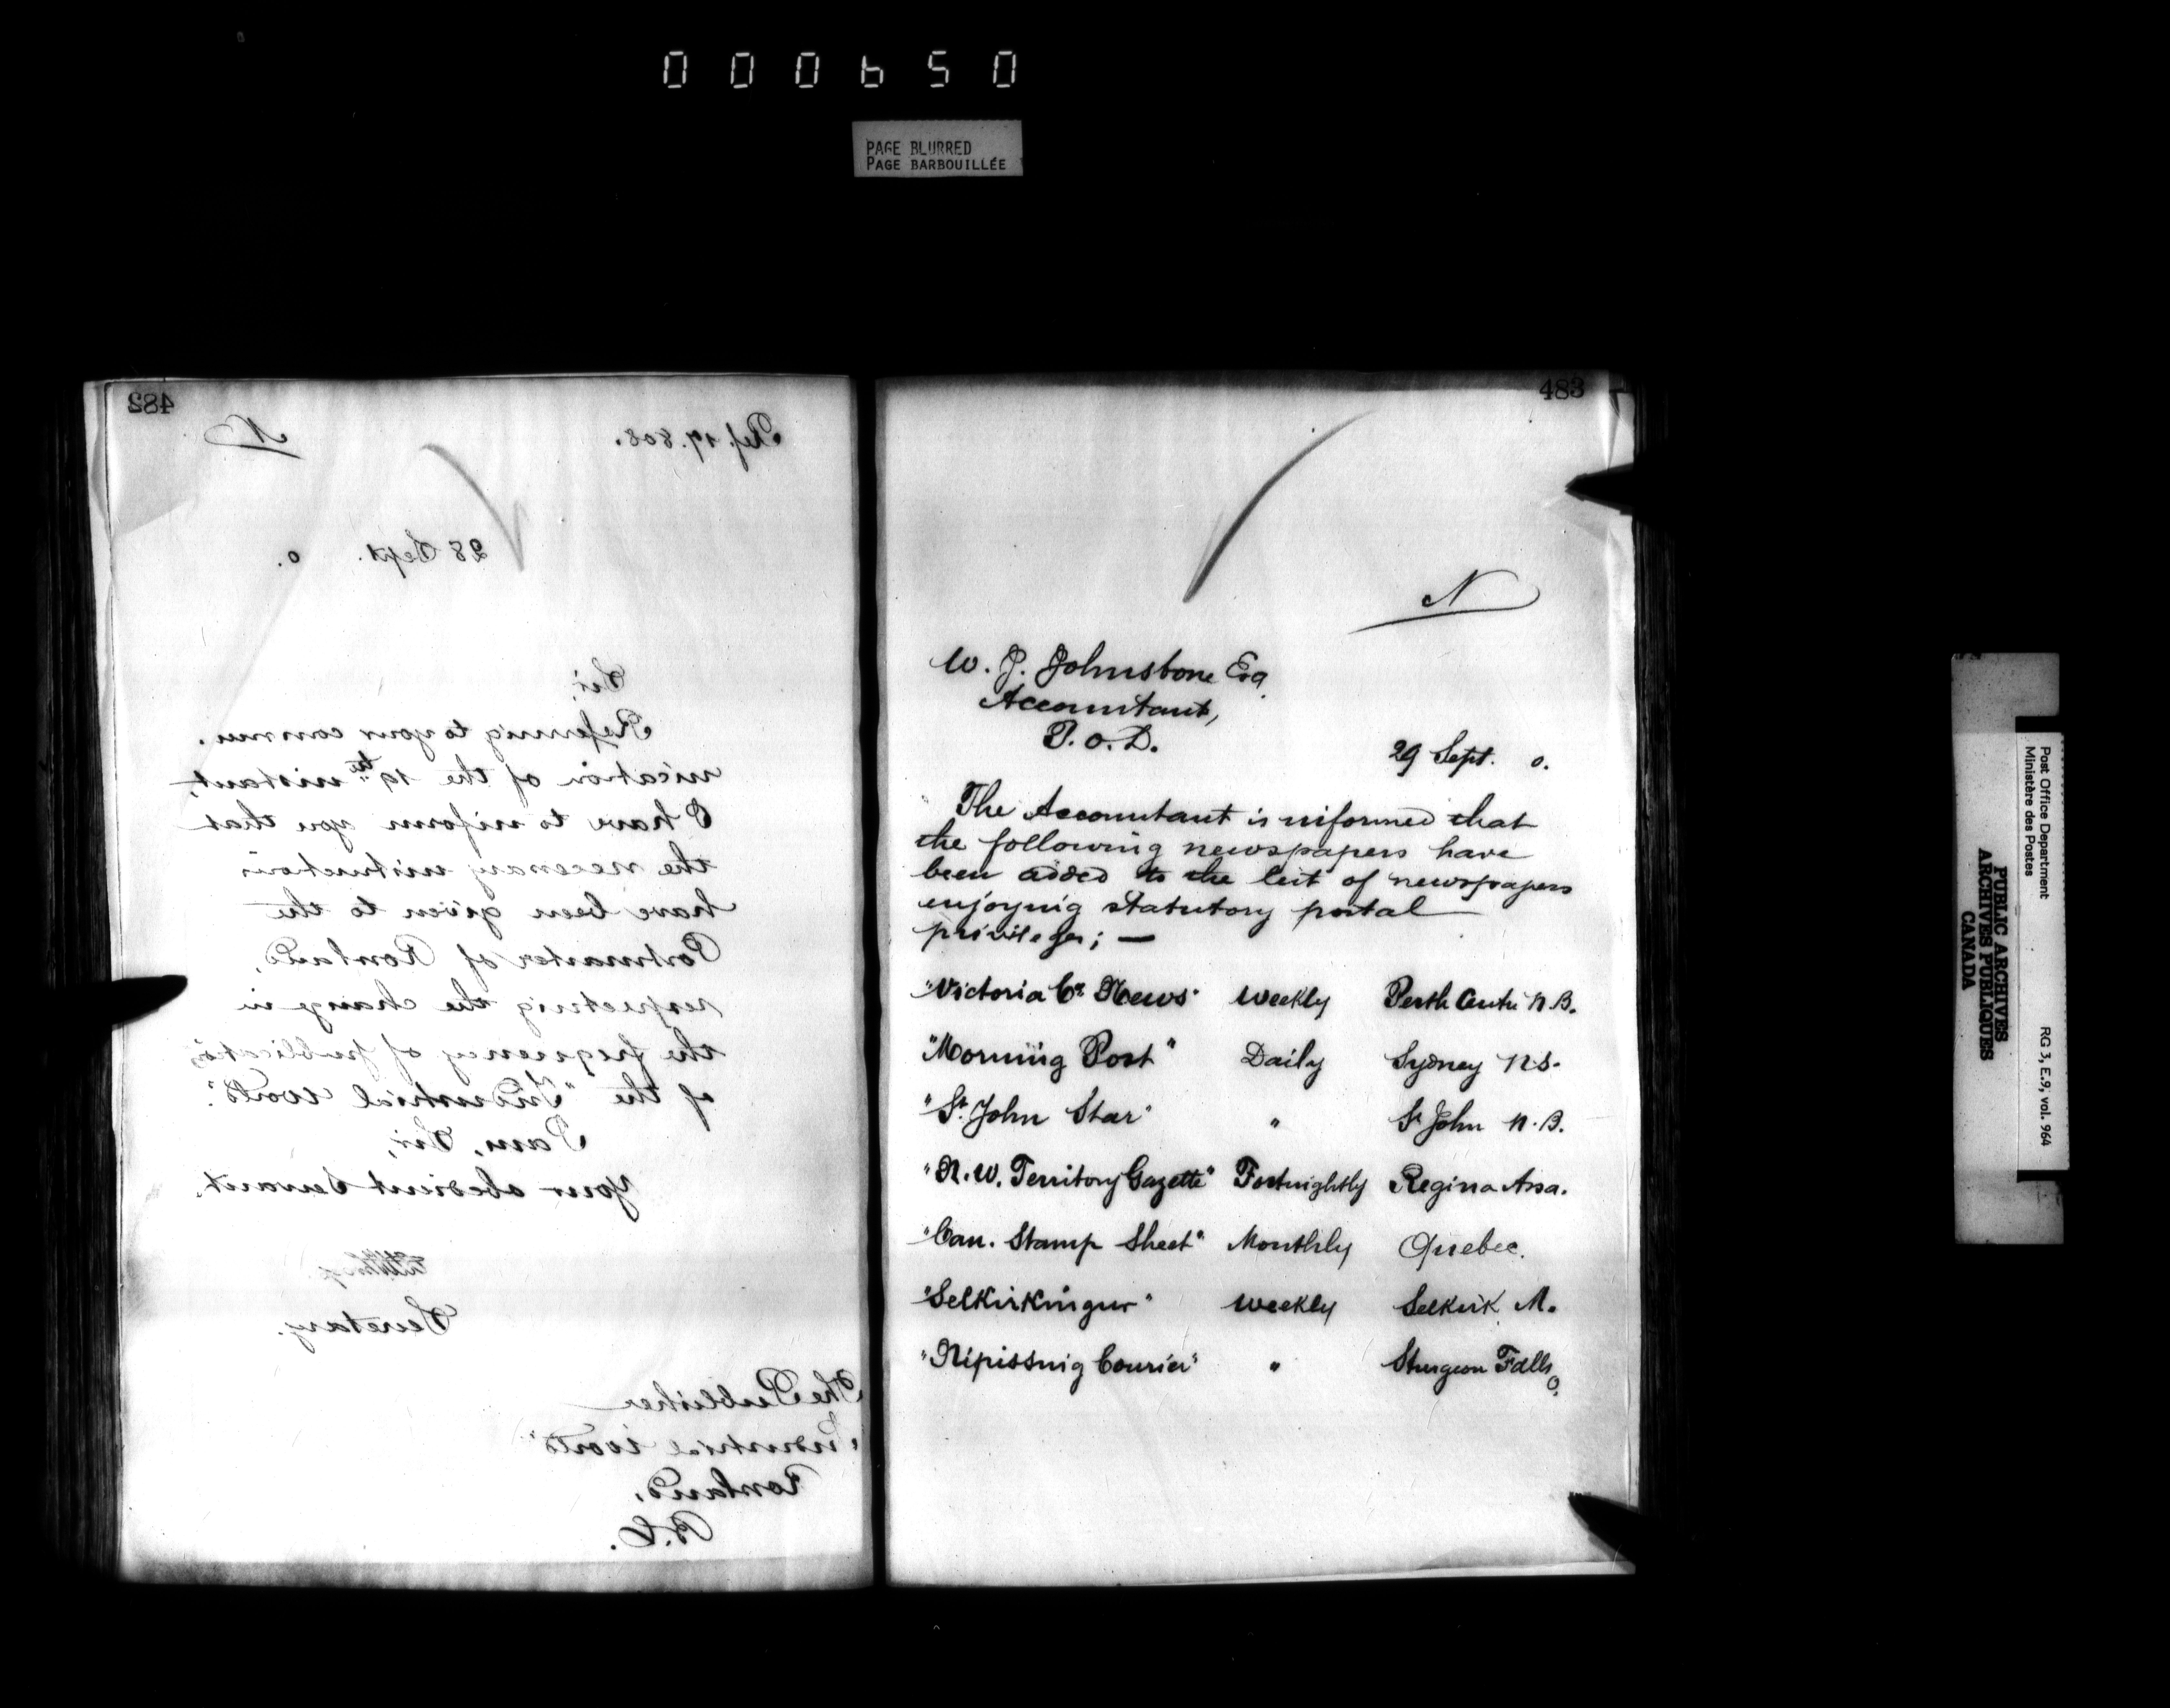 000650
PAGE BLURRED
PAGE BARBOUILLÉE
482
Ref. 17.808.
N
28 Sept. 0.
Sir,
Referring to your commu-
nication of the 19th instant,
I have to inform you that
the necessary instructions
have been given to the
Postmaster of Rossland,
respecting the change in
the frequency of publication
of the "Industrial World".
I am, Sir,
Your obedient Servant.
Secretary.
The Publisher
"Industrial World"
Rossland,
B.C.
483
N
W. J. Johnstone Esq.
Accountant,
P.O.D.
29 Sept. 0.
The Accountant is informed that
the following newspapers have
been added to the list of newspapers
enjoying statutory postal
privileges; —
"Victoria Co. News" Weekly Perth Centre N.B.
"Morning Post" Daily Sydney N.S.
"St. John Star" " St John N.B.
"N.W. Territory Gazette" Fortnightly Regina Assa.
"Can. Stamp Sheet" Monthly Quebec.
"Selkirkingur" Weekly Selkirk M.
"Nipissing Courier" " Sturgeon Falls O.
Post Office Department
Ministère des Postes
RG 3, E.9, vol. 964
PUBLIC ARCHIVES
ARCHIVES PUBLIQUES
CANADA